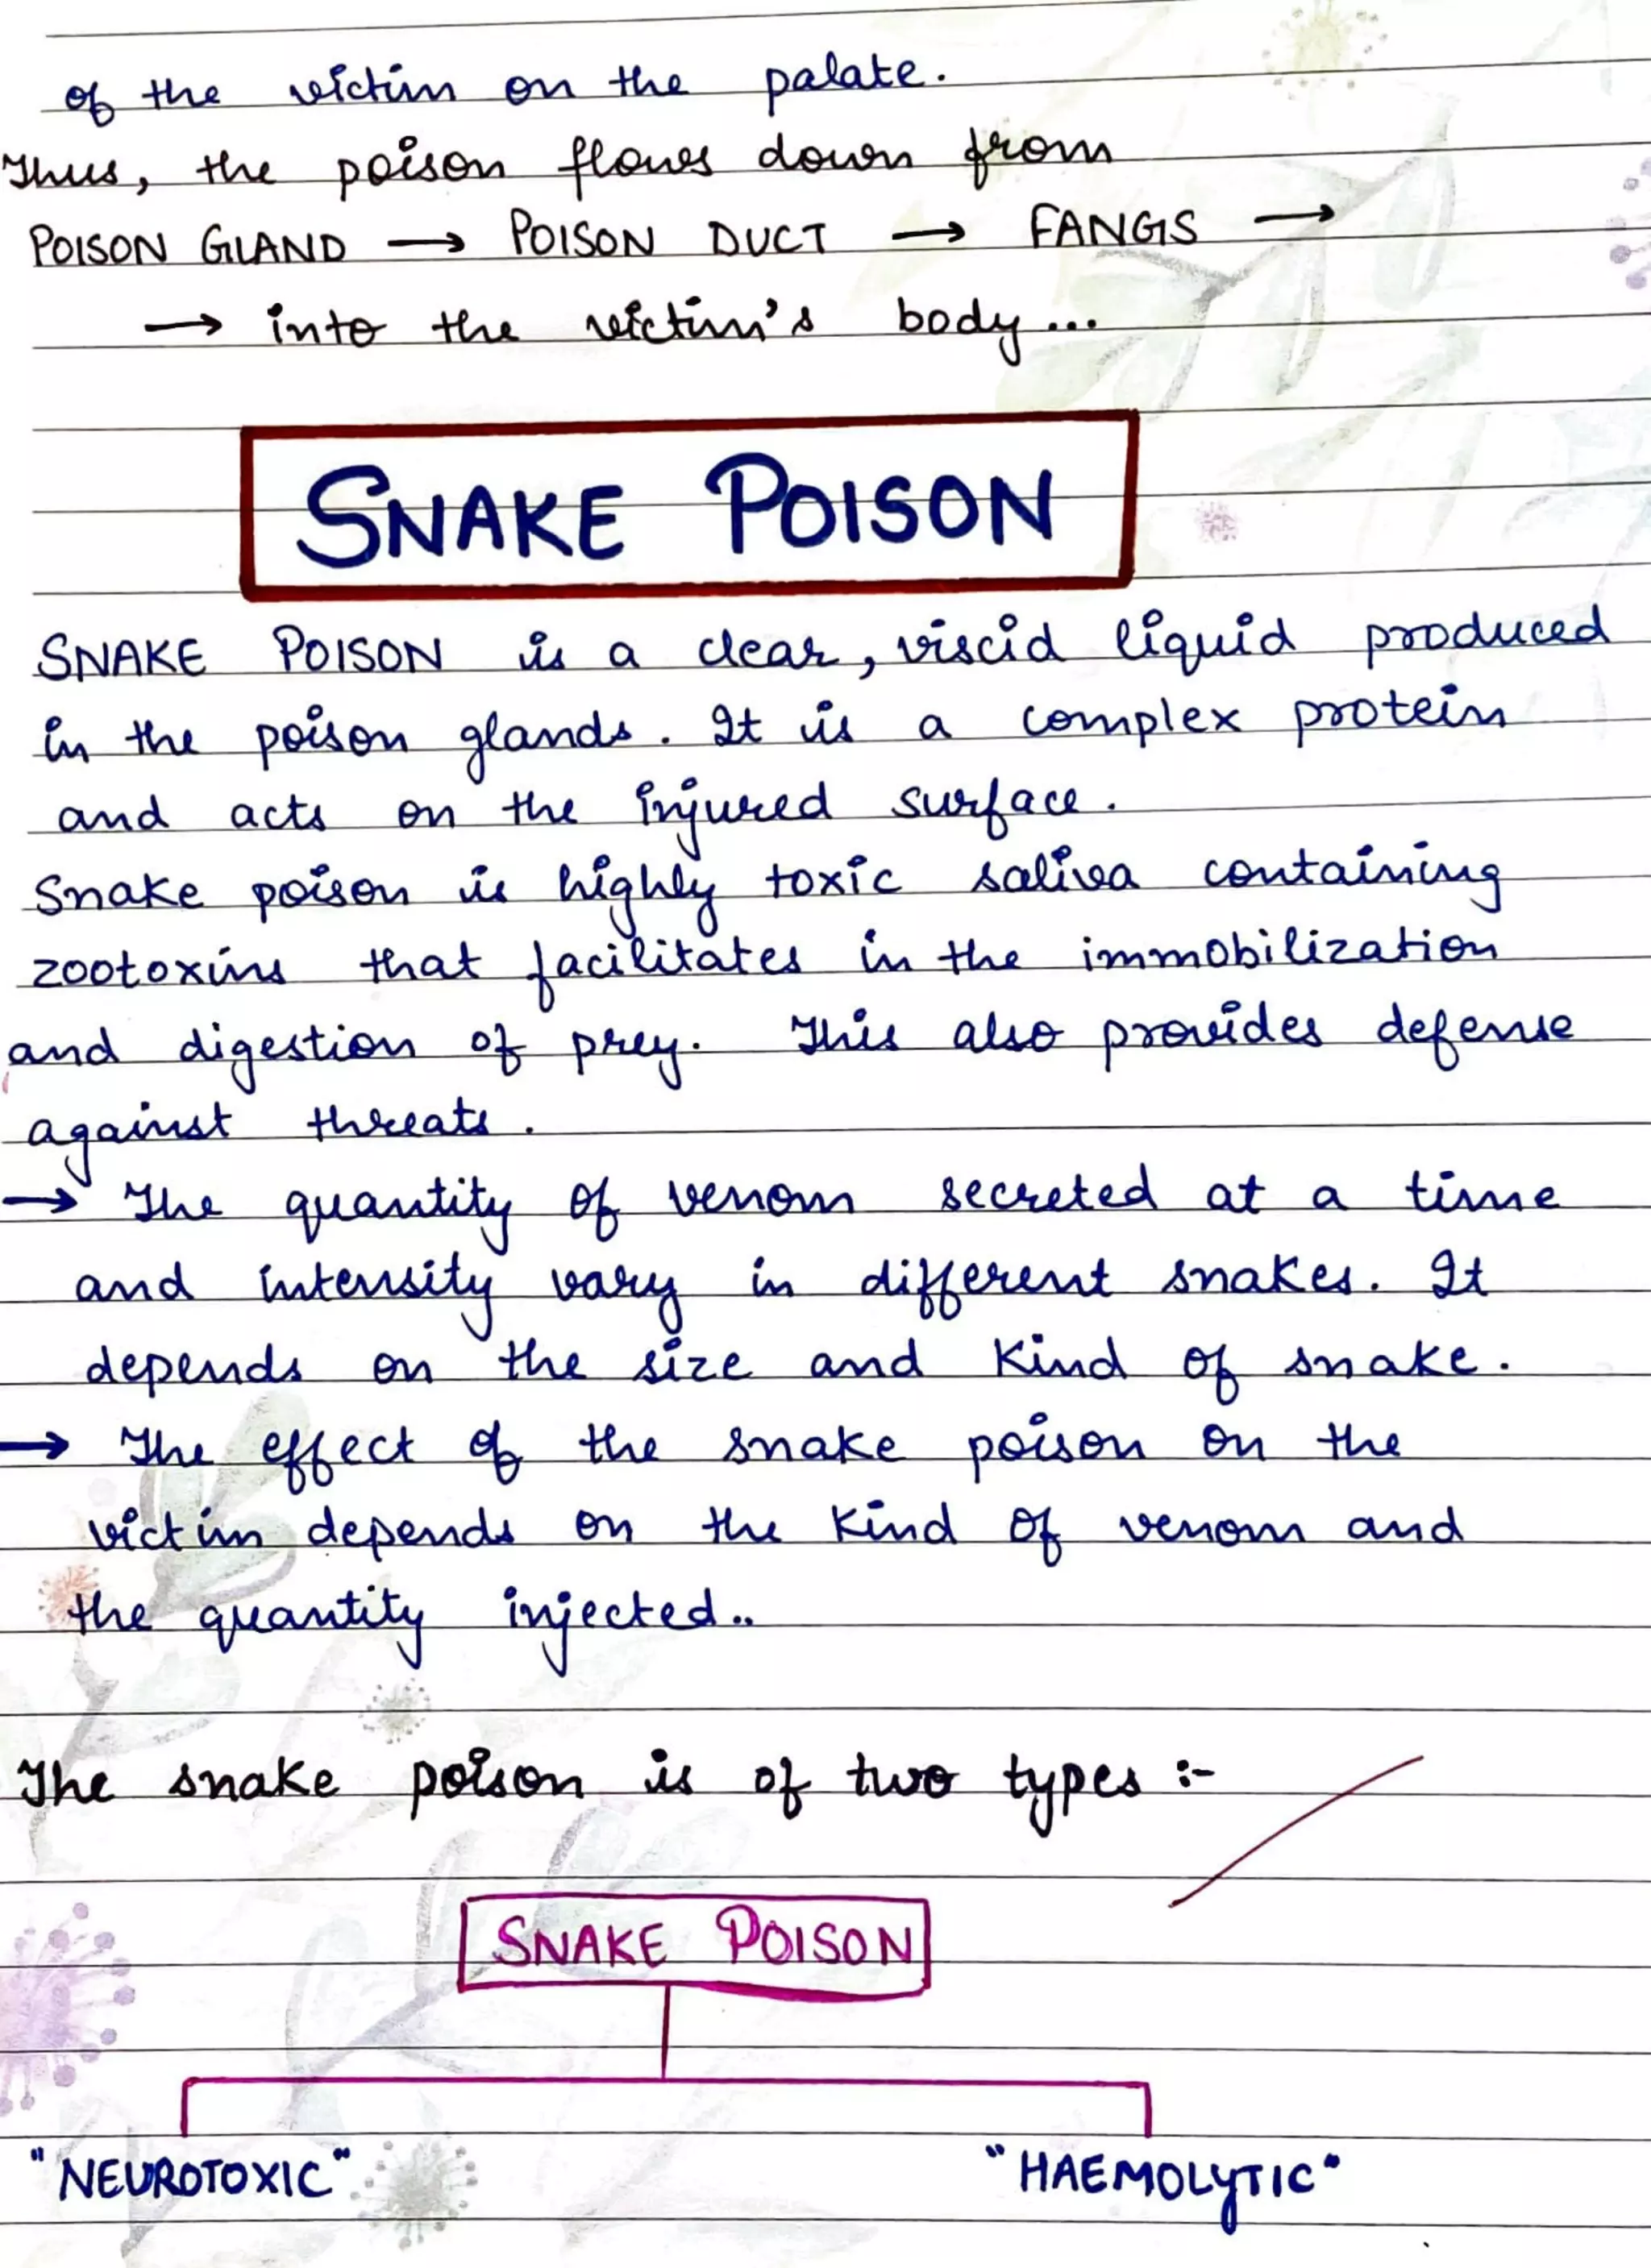 of the victim on the palate.
Thus, the poison flows down from
POISON GLAND → POISON DUCT → FANGS →
→ into the victim's body...
SNAKE POISON
SNAKE POISON is a clear, viscid liquid produced
in the poison glands. It is a complex protein
and acts on the injured surface.
Snake poison is highly toxic saliva containing
zootoxins that facilitates in the immobilization
and digestion of prey. This also provides defense
against threats.
→ The quantity of venom secreted at a time
and intensity vary in different snakes. It
depends on the size and kind of snake.
→ The effect of the snake poison on the
victim depends on the kind of venom and
the quantity injected..
The snake poison is of two types :-
SNAKE POISON
"NEUROTOXIC" "HAEMOLYTIC"